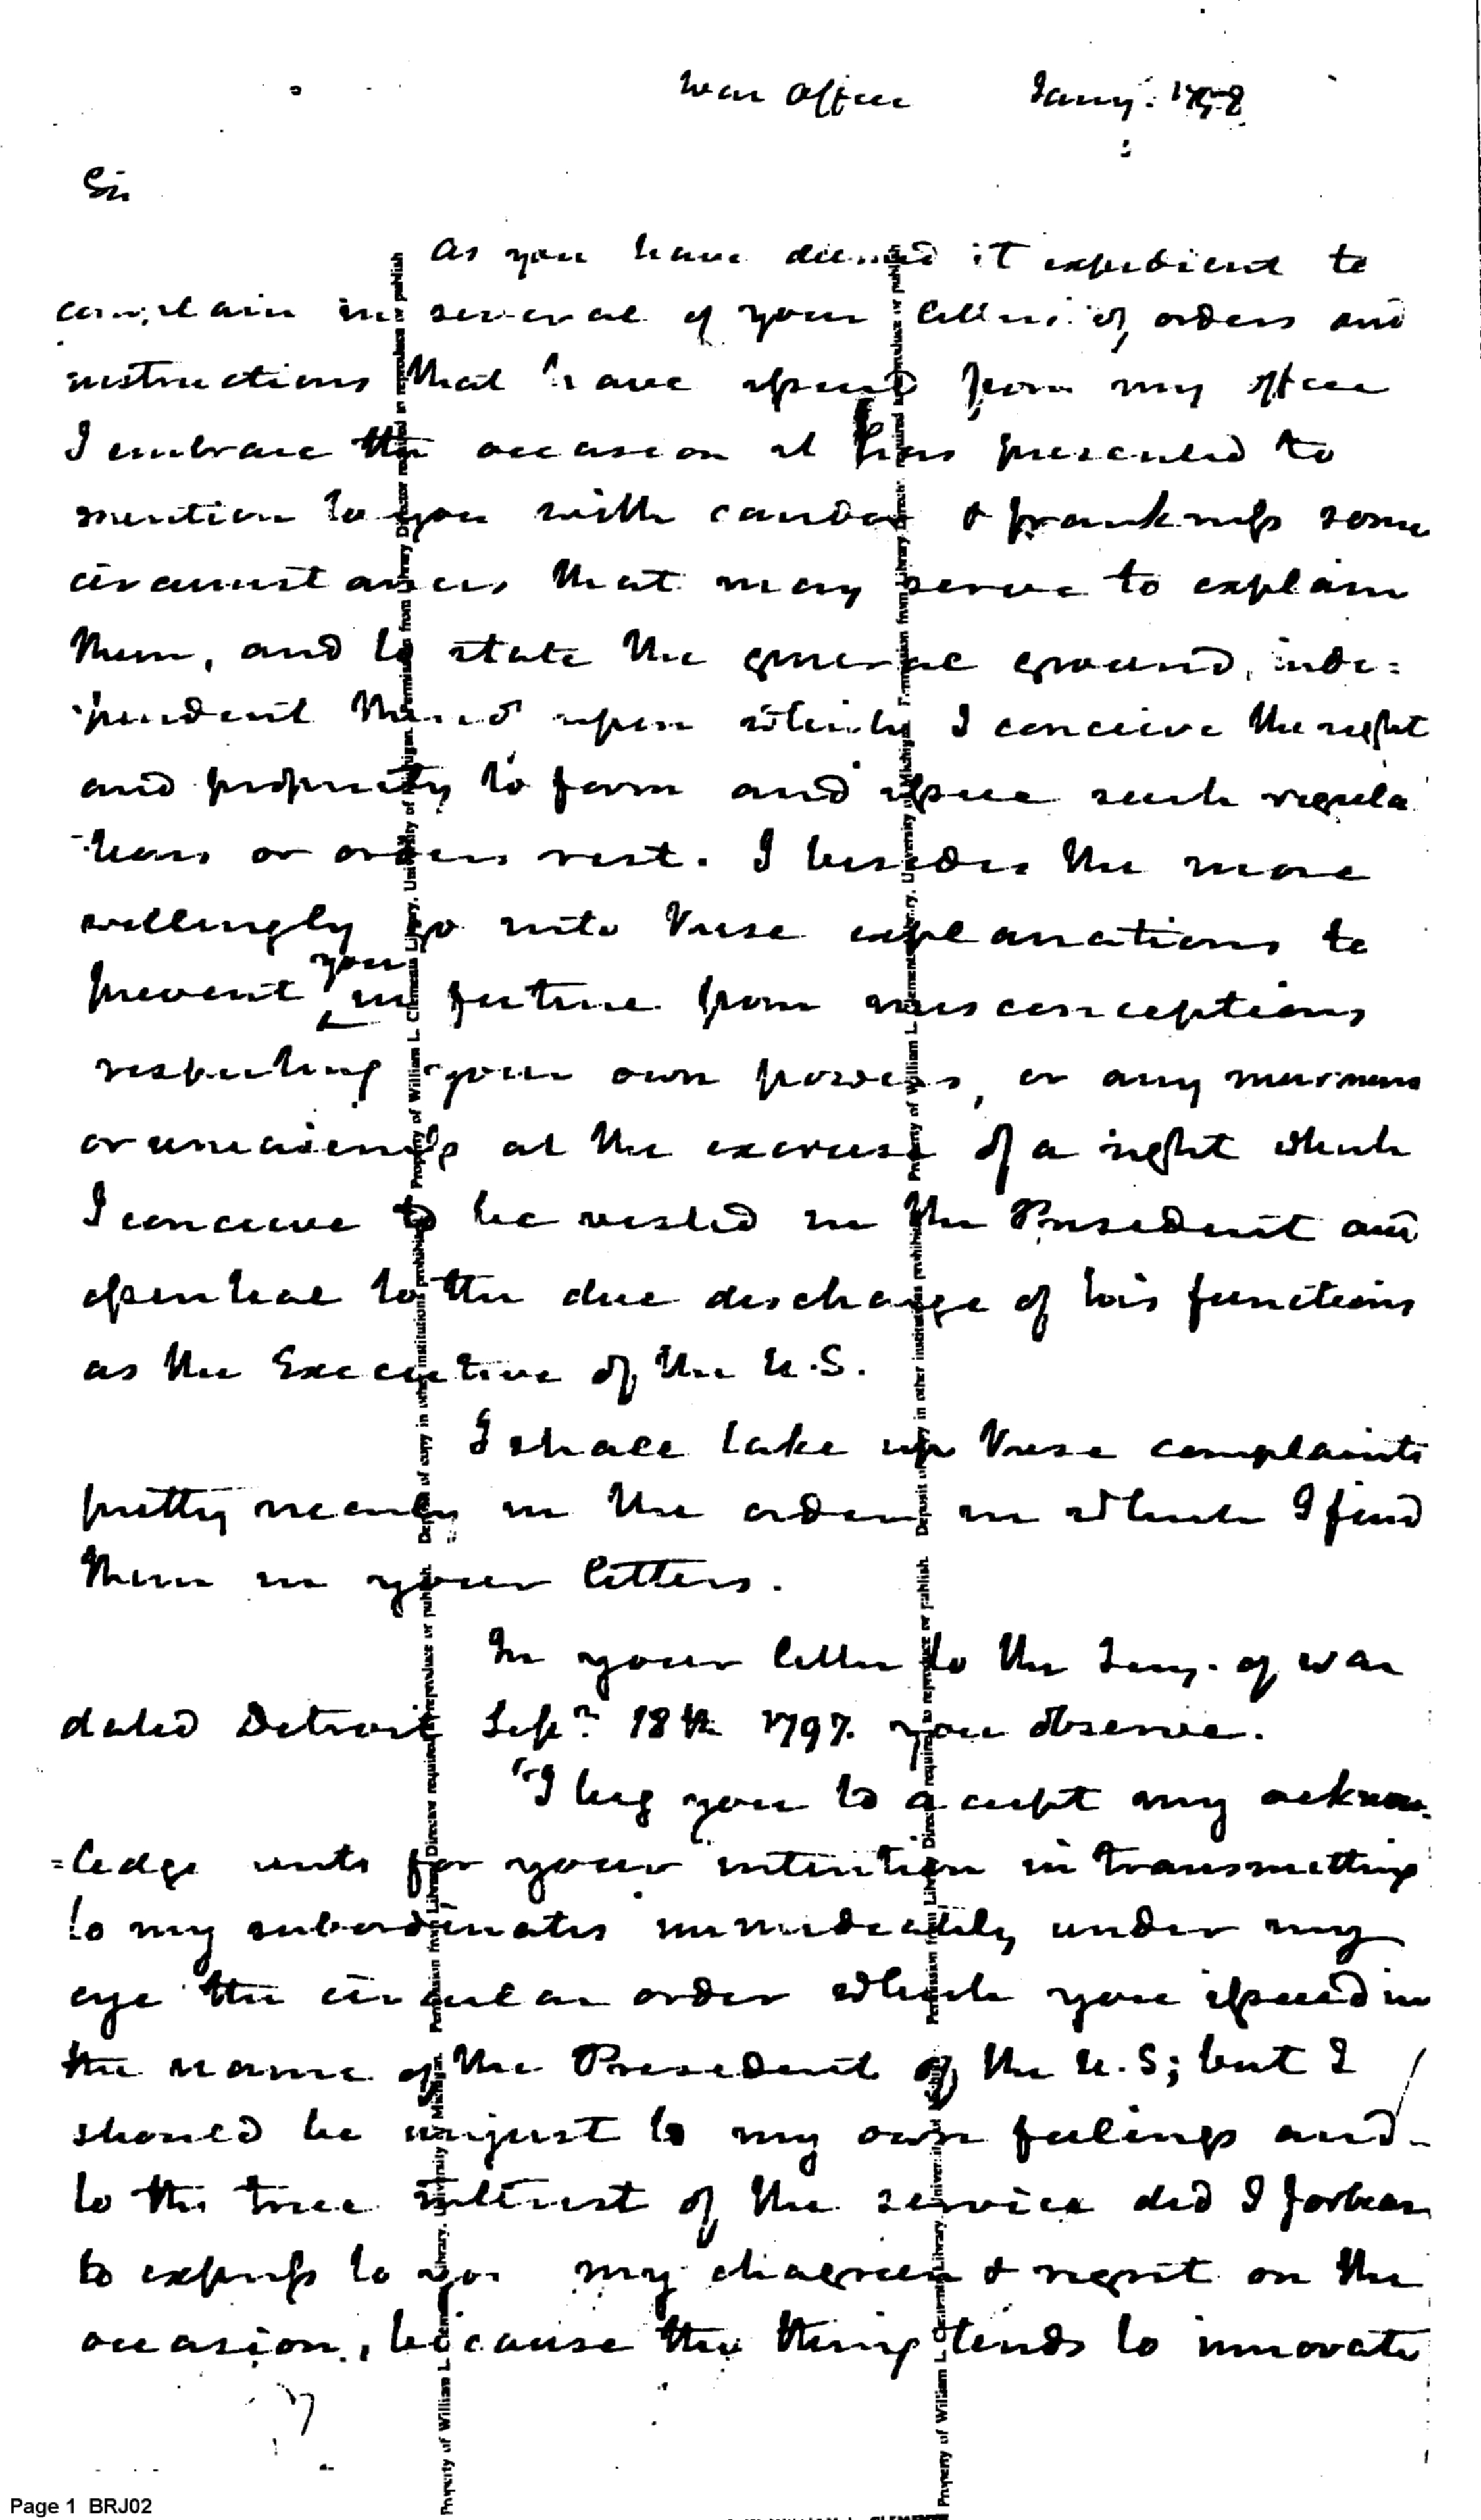 War Office Jany. 1798
Sir
As you have deemed it expedient to
complain in several of your letters of orders and
instructions that have issued from my office
I embrace the occasion it has presented to
mention to you with candor & frankness some
circumstances that may serve to explain
them, and to state the general ground, inde=
pendent thereof upon which I conceive the right
and propriety to form and issue such regula
-tions or orders rest. I besides the more
willingly go into these explanations to
prevent you in future from misconceptions
respecting your own powers, or any murmurs
or uneasiness at the exercise of a right which
I conceive to be vested in the President and
essential to the due discharge of his functions
as the Executive of the U.S.
I shall take up these complaints
pretty nearly in the order in which I find
them in your letters.
In your letter to the Secy. of war
dated Detroit Sepr. 18th 1797. you observe.
"I beg you to accept my acknow
=ledgements for your intention in transmitting
to my subordinates immediately under my
eye the circular order which you issued in
the name of the President of the U.S; but I
should be unjust to my own feelings and
to the true interest of the service did I forbear
to express to you my chagreen & regrit on the
occasion, because the thing tends to innovate
Page 1 BRJ02
Property of William L. Clements Library, University of Michigan. Permission from Library Director required to reproduce or publish. Deposit of copy in other institutions prohibited.
Property of William L. Clements Library, University of Michigan. Permission from Library Director required to reproduce or publish. Deposit of copy in other institutions prohibited.